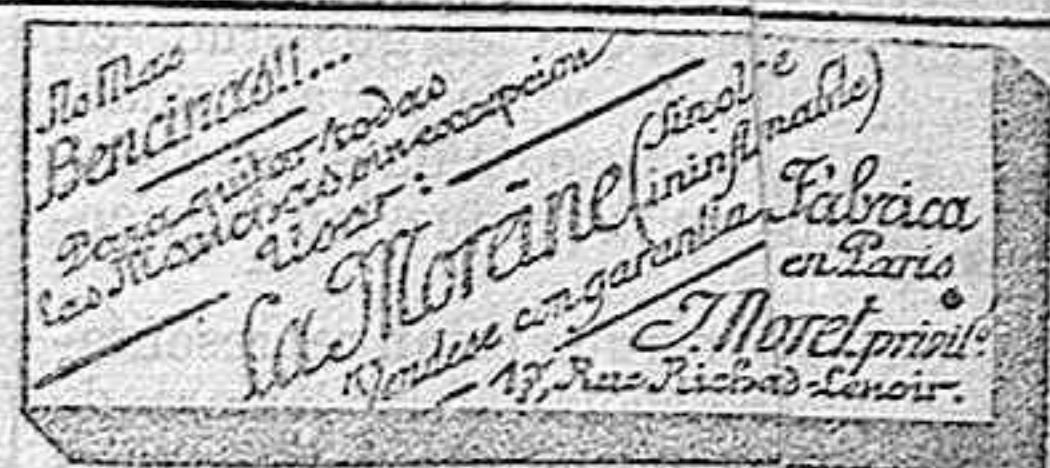 No Mas
Bencinas!!...
Para quitar todas
las Manchas sin excepcion
Usar:
La Moreïne (sin olor
ininflamable)
Vendese con garantia
Fábrica
en Paris
J. Moret. privil.º
17, Rue Richad-Lenoir.